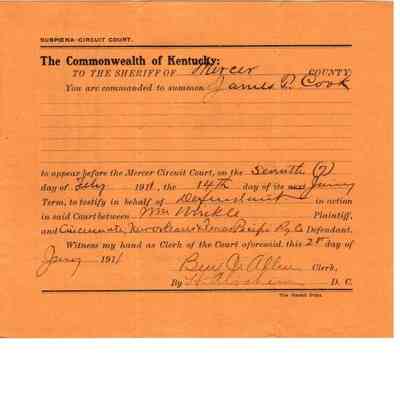 SUBPŒNA—CIRCUIT COURT.
The Commonwealth of Kentucky:
TO THE SHERIFF OF Mercer COUNTY:
You are commanded to summon James P. Cook
to appear before the Mercer Circuit Court, on the Seventh (7)
day of Feby 1911, the 14th day of its next Jany
Term, to testify in behalf of Defendant in action
in said Court between Wm Winkle Plaintiff,
and Cincinnati, New Orleans & Texas Pacific Ry Co Defendant.
Witness my hand as Clerk of the Court aforesaid, this 28 day of
Jany 1911 Ben Allen Clerk,
By D. C.
The Herald Print.